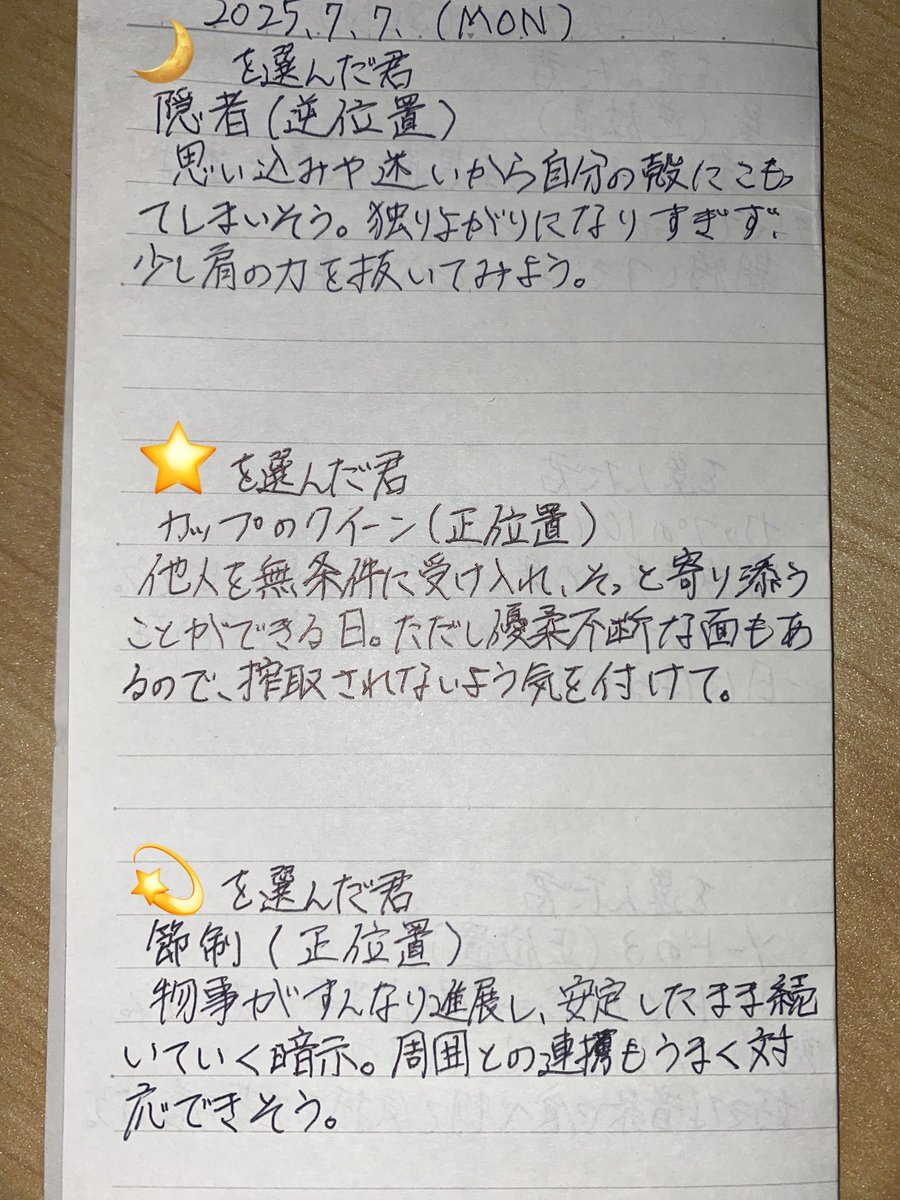 2025.7.7. (MON)
🌙 を選んだ君
隠者(逆位置)
思い込みや迷いから自分の殻にこもっ
てしまいそう。独りよがりになりすぎず、
少し肩の力を抜いてみよう。
⭐ を選んだ君
カップのクイーン(正位置)
他人を無条件に受け入れ、そっと寄り添う
ことができる日。ただし優柔不断な面もあ
るので、搾取されないよう気を付けて。
💫 を選んだ君
節制(正位置)
物事がすんなり進展し、安定したまま続
いていく暗示。周囲との連携もうまく対
応できそう。